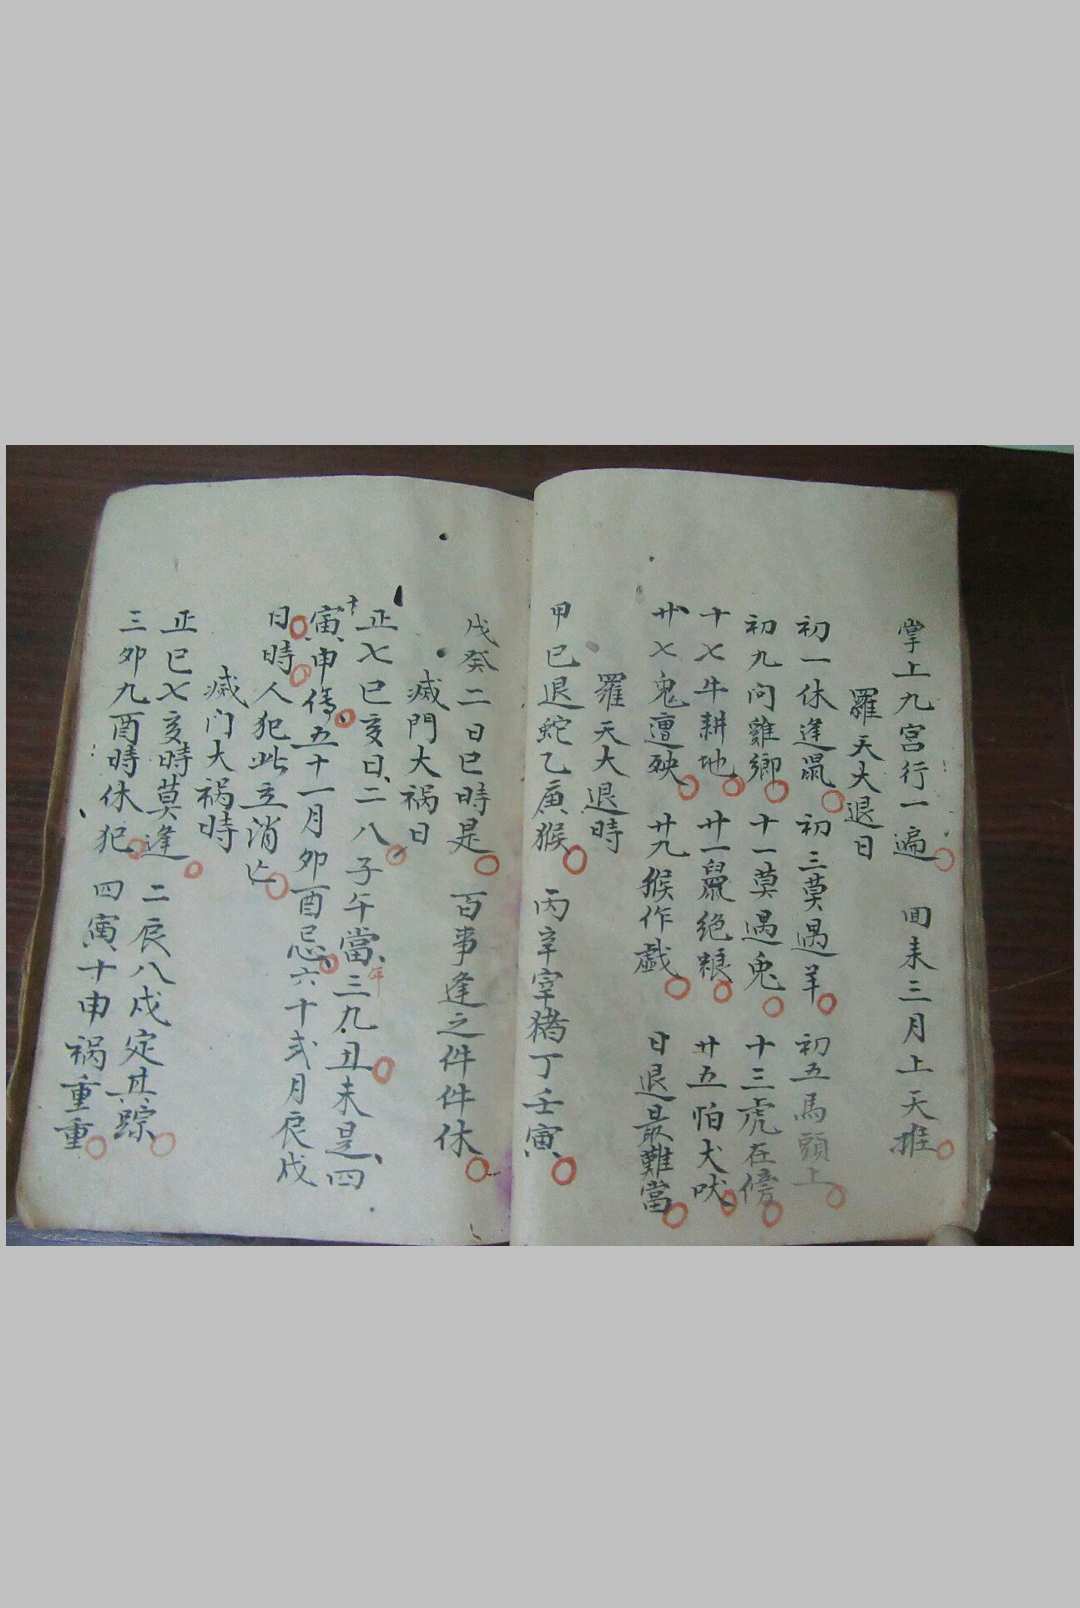 掌上九宮行一遍 回来三月上天推
羅天大退日
初一休逢鼠 初三莫遇羊 初五馬頭上
初九问雞鄉 十一莫遇兎 十三虎在傍
十七牛耕地 廿一鼠绝粮 廿五怕犬吠
廿七鬼遭殃 廿九猴作戯 日退最難當
羅天大退時
甲巳退蛇乙庚猴 丙辛宰猪丁壬寅
戊癸二日巳時是 百事逢之件件休
滅門大祸日
正七巳亥日二八子午當年三九丑未是四
十寅申傷五十一月卯酉忌六十弍月辰戌
日時人犯此立消亡
滅门大祸時
正巳七亥時莫逢 二辰八戌定其踪
三卯九酉時休犯 四寅十申祸重重